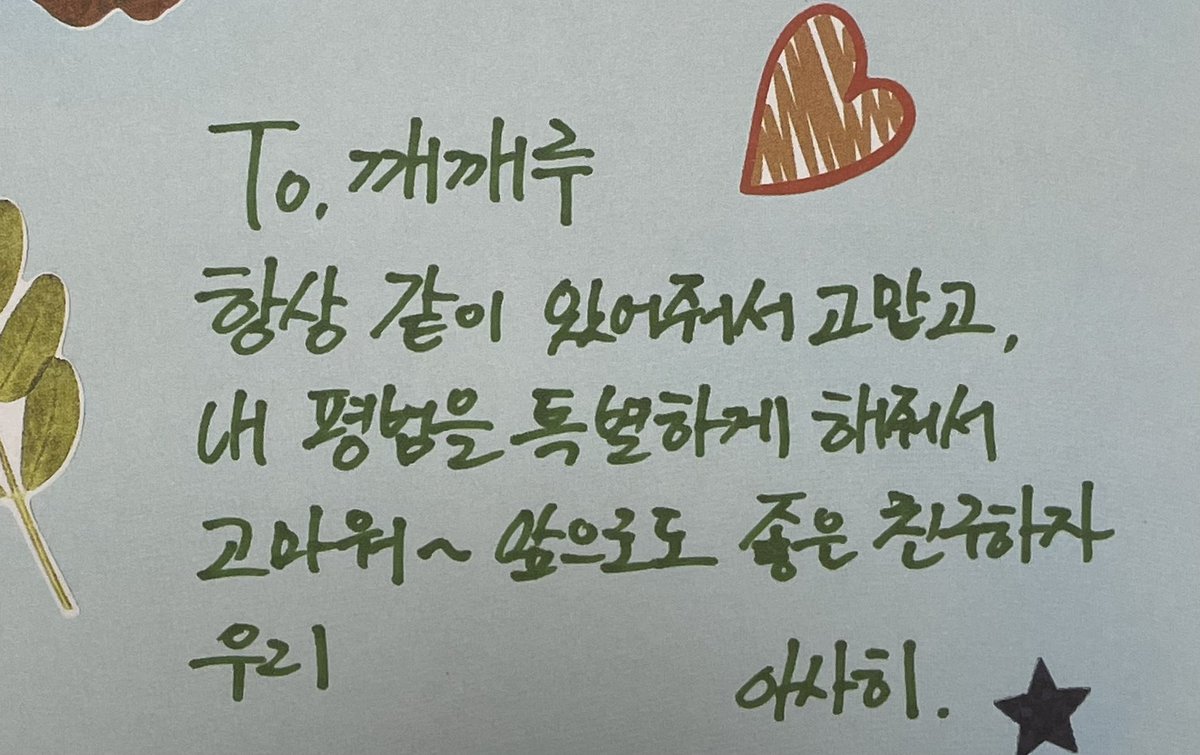 To. 깨깨루
항상 같이 있어줘서 고맙고,
내 평범을 특별하게 해줘서
고마워~ 앞으로도 좋은 친구하자
우리
아사히.